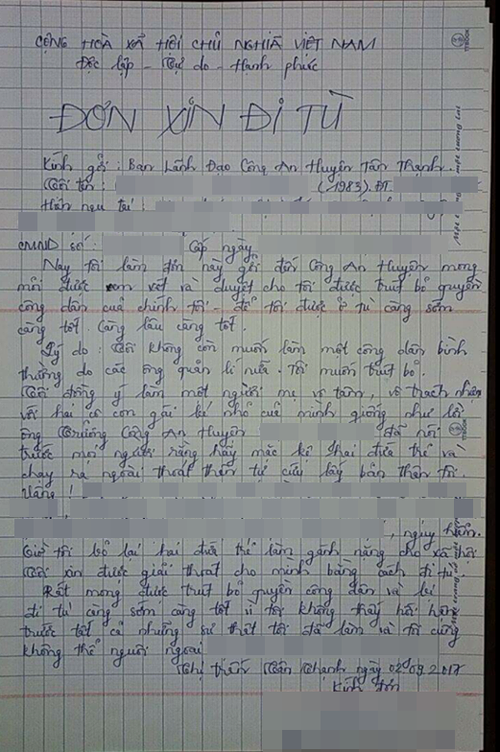 CỘNG HOÀ XÃ HỘI CHỦ NGHĨA VIỆT NAM
Độc lập - Tự do - Hạnh phúc
ĐƠN XIN ĐI TÙ
Kính gởi : Ban Lãnh Đạo Công An Huyện Tân Thạnh.
Tôi tên : (1983). ĐT
Hiện ngụ tại :
CMND số : Cấp ngày
Nay tôi làm đơn này gởi đến Công An Huyện mong
mỏi được xem xét và duyệt cho tôi được trút bỏ quyền
công dân của chính tôi - để tôi được ở tù càng sớm
càng tốt. Càng lâu càng tốt.
Lý do : Tôi không còn muốn làm một công dân bình
thường do các ông quản lí nữa. Tôi muốn trút bỏ.
Tôi đồng ý làm một người mẹ vô tâm, vô trách nhiệm
với hai cô con gái bé nhỏ của mình giống như lời
ông Trưởng Công An Huyện đã nói
trước mọi người rằng hãy mặc kệ hai đứa trẻ và
chạy ra ngoài thoát thân tự cứu lấy bản thân tôi.
Vâng !
, nguy hiểm.
Giờ tôi bỏ lại hai đứa trẻ làm gánh nặng cho xã hội
Tôi xin được giải thoát cho mình bằng cách đi tù.
Rất mong được trút bỏ quyền công dân và
đi tù càng sớm càng tốt vì tôi không thấy hối hận
trước tất cả những sự thật tôi đã làm và tôi cũng
không thể người ngoài
Thị trấn Tân Thạnh ngày 02.09.2017
Kính đơn